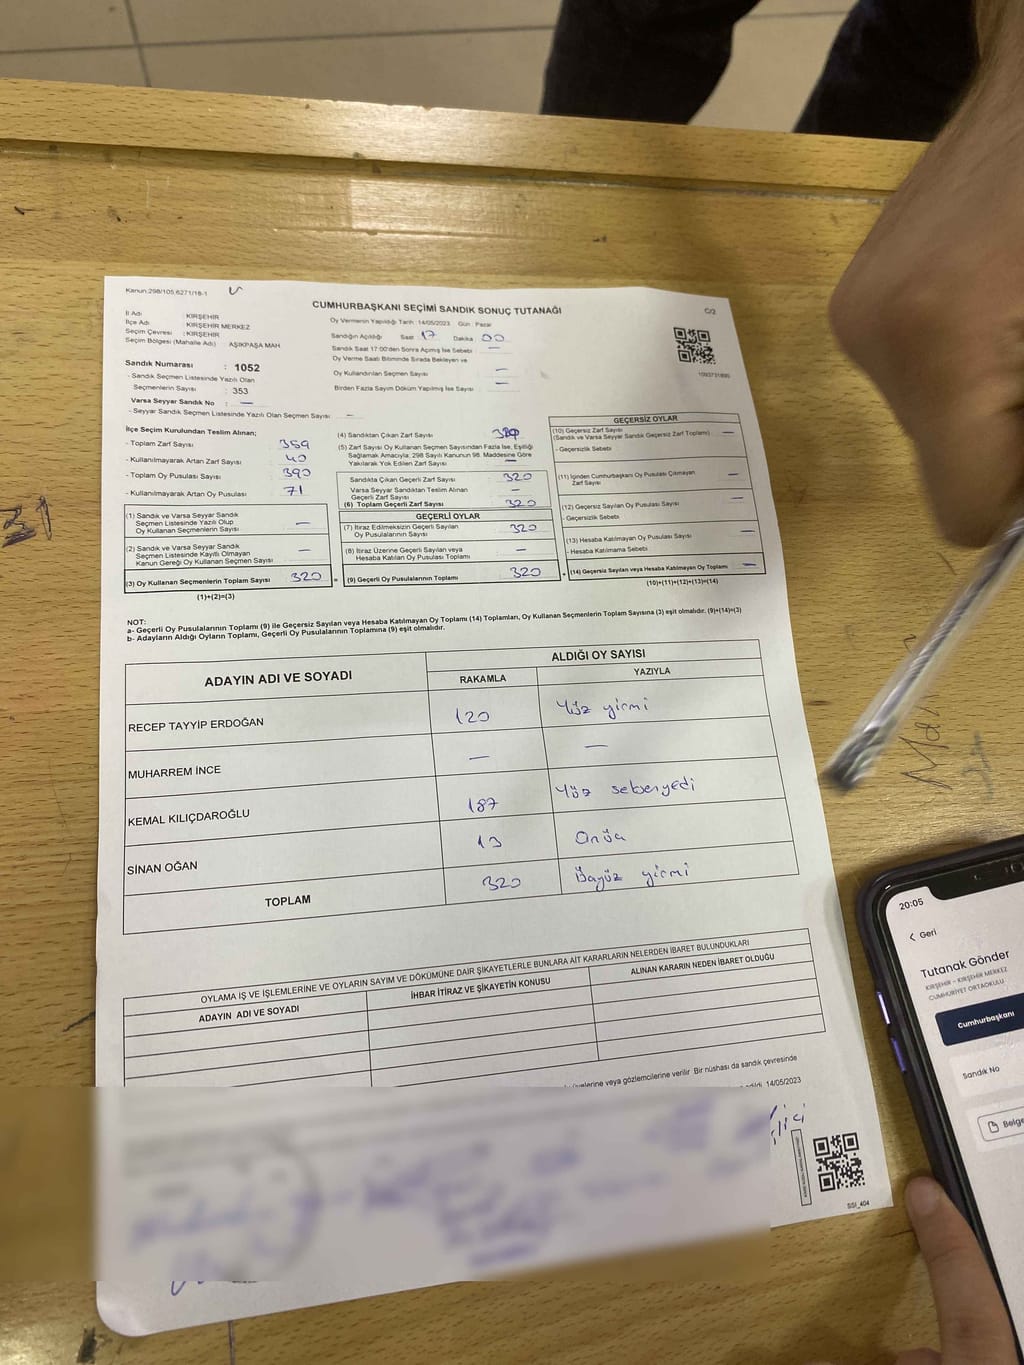 Kanun:298/105,6271/18-1
CUMHURBAŞKANI SEÇİMİ SANDIK SONUÇ TUTANAĞI
C/2
İl Adı : KIRŞEHİR
İlçe Adı : KIRŞEHİR MERKEZ
Seçim Çevresi : KIRŞEHİR
Seçim Bölgesi (Mahalle Adı) : AŞIKPAŞA MAH
Oy Vermenin Yapıldığı Tarih : 14/05/2023 Gün : Pazar
Sandığın Açıldığı Saat 17 Dakika 00
Sandık Saat 17:00'den Sonra Açılmış İse Sebebi —
Oy Verme Saati Bitiminde Sırada Bekleyen ve
Oy Kullandırılan Seçmen Sayısı —
Birden Fazla Sayım Döküm Yapılmış İse Sayısı —
1093731895
Sandık Numarası : 1052
- Sandık Seçmen Listesinde Yazılı Olan
Seçmenlerin Sayısı : 353
Varsa Seyyar Sandık No : —
- Seyyar Sandık Seçmen Listesinde Yazılı Olan Seçmen Sayısı : —
İlçe Seçim Kurulundan Teslim Alınan;
- Toplam Zarf Sayısı 359
- Kullanılmayarak Artan Zarf Sayısı 40
- Toplam Oy Pusulası Sayısı 390
- Kullanılmayarak Artan Oy Pusulası 71
(1) Sandık ve Varsa Seyyar Sandık
Seçmen Listesinde Yazılı Olup
Oy Kullanan Seçmenlerin Sayısı —
(2) Sandık ve Varsa Seyyar Sandık
Seçmen Listesinde Kayıtlı Olmayan
Kanun Gereği Oy Kullanan Seçmen Sayısı —
(3) Oy Kullanan Seçmenlerin Toplam Sayısı 320
(1)+(2)=(3)
(4) Sandıktan Çıkan Zarf Sayısı
(5) Zarf Sayısı Oy Kullanan Seçmen Sayısından Fazla İse, Eşitliği
Sağlamak Amacıyla, 298 Sayılı Kanunun 98. Maddesine Göre
Yakılarak Yok Edilen Zarf Sayısı —
Sandıkta Çıkan Geçerli Zarf Sayısı 320
Varsa Seyyar Sandıktan Teslim Alınan
Geçerli Zarf Sayısı —
(6) Toplam Geçerli Zarf Sayısı 320
GEÇERLİ OYLAR
(7) İtiraz Edilmeksizin Geçerli Sayılan
Oy Pusulalarının Sayısı 320
(8) İtiraz Üzerine Geçerli Sayılan veya
Hesaba Katılan Oy Pusulası Toplamı —
= (9) Geçerli Oy Pusulalarının Toplamı 320
GEÇERSİZ OYLAR
(10) Geçersiz Zarf Sayısı —
(Sandık ve Varsa Seyyar Sandık Geçersiz Zarf Toplamı)
- Geçersizlik Sebebi
(11) İçinden Cumhurbaşkanı Oy Pusulası Çıkmayan
Zarf Sayısı —
(12) Geçersiz Sayılan Oy Pusulası Sayısı —
- Geçersizlik Sebebi
(13) Hesaba Katılmayan Oy Pusulası Sayısı —
- Hesaba Katılmama Sebebi
+ (14) Geçersiz Sayılan veya Hesaba Katılmayan Oy Toplamı —
(10)+(11)+(12)+(13)=(14)
NOT:
a- Geçerli Oy Pusulalarının Toplamı (9) ile Geçersiz Sayılan veya Hesaba Katılmayan Oy Toplamı (14) Toplamları, Oy Kullanan Seçmenlerin Toplam Sayısına (3) eşit olmalıdır. (9)+(14)=(3)
b- Adayların Aldığı Oyların Toplamı, Geçerli Oy Pusulalarının Toplamına (9) eşit olmalıdır.
ADAYIN ADI VE SOYADI
ALDIĞI OY SAYISI
RAKAMLA YAZIYLA
RECEP TAYYİP ERDOĞAN 120 Yüz yirmi
MUHARREM İNCE — —
KEMAL KILIÇDAROĞLU 187 Yüz seksenyedi
SİNAN OĞAN 13 Onüç
TOPLAM 320 Üçyüz yirmi
OYLAMA İŞ VE İŞLEMLERİNE VE OYLARIN SAYIM VE DÖKÜMÜNE DAİR ŞİKAYETLERLE BUNLARA AİT KARARLARIN NELERDEN İBARET BULUNDUKLARI
ADAYIN ADI VE SOYADI İHBAR İTİRAZ VE ŞİKAYETİN KONUSU ALINAN KARARIN NEDEN İBARET OLDUĞU
veya gözlemcilerine verilir Bir nüshası da sandık çevresinde
14/05/2023
SSİ_404
31
20:05
Geri
Tutanak Gönder
KIRŞEHİR - KIRŞEHİR MERKEZ
CUMHURİYET ORTAOKULU
Cumhurbaşkanı
Sandık No